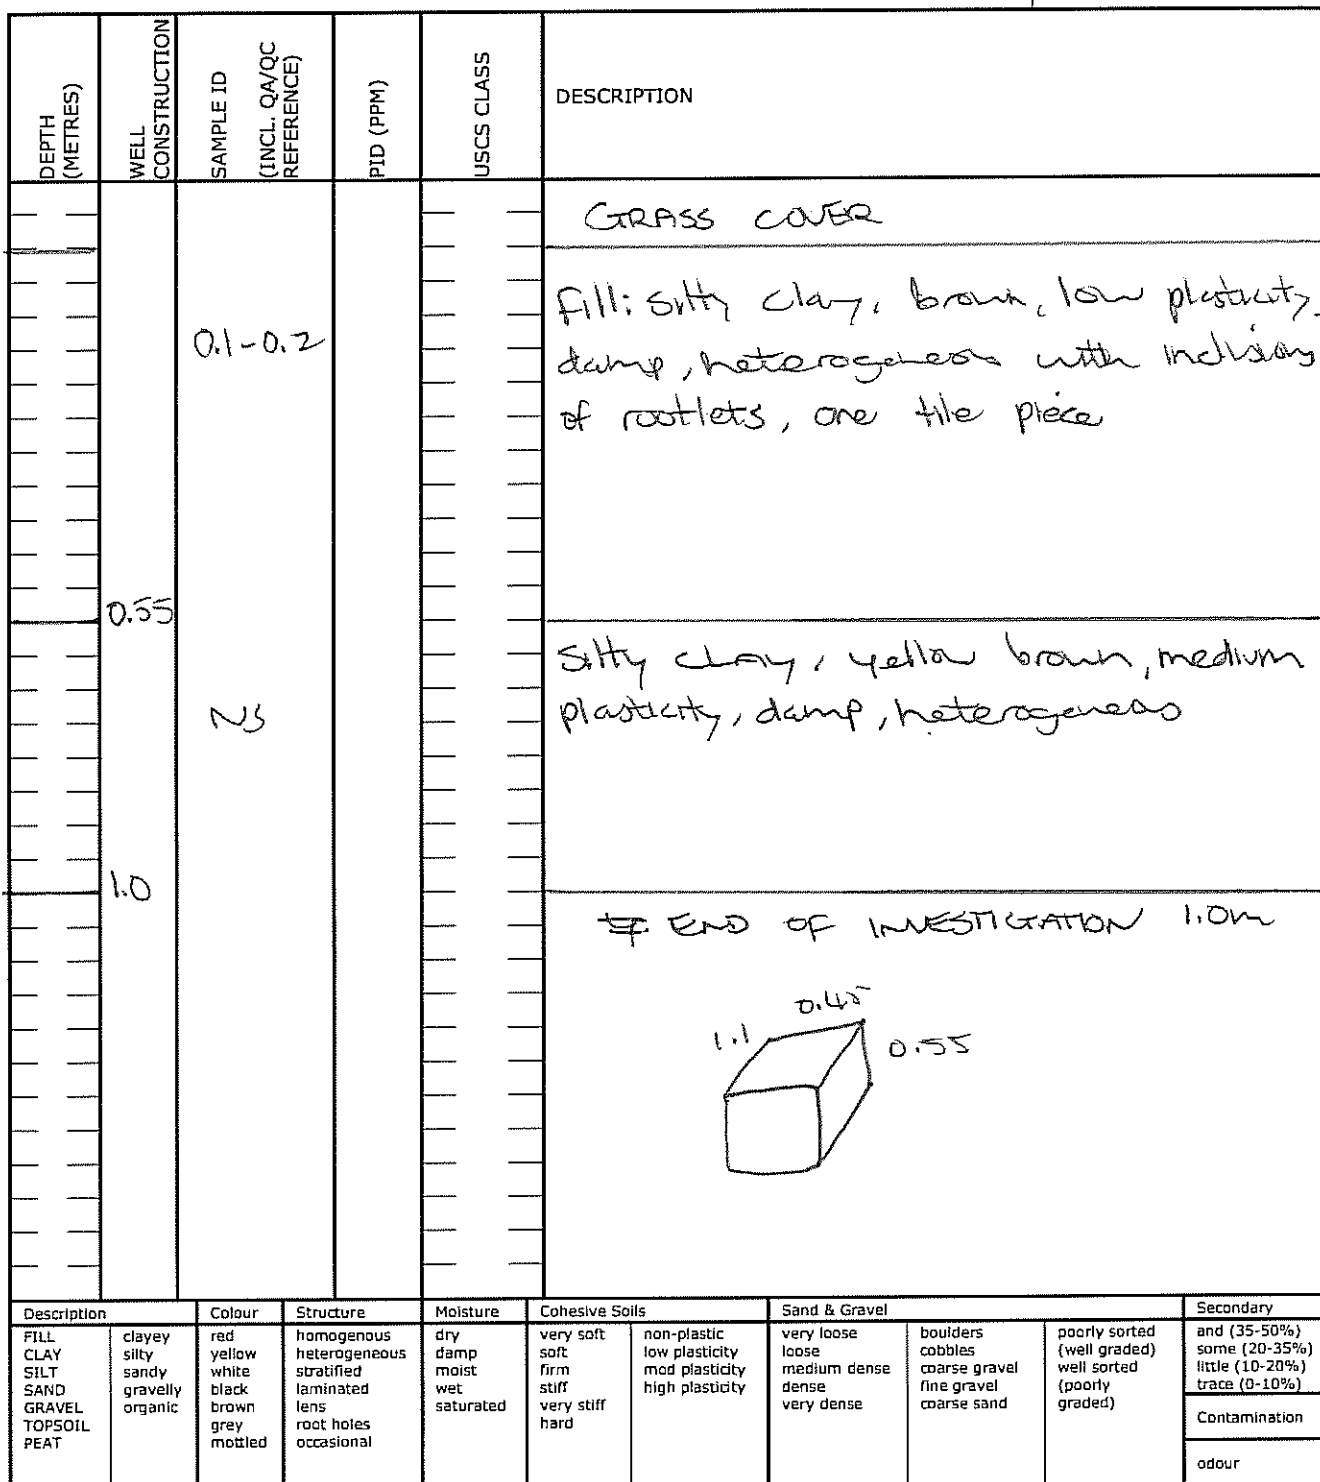 DEPTH
(METRES)
WELL
CONSTRUCTION
SAMPLE ID
(INCL. QA/QC
REFERENCE)
PID (PPM)
USCS CLASS
DESCRIPTION
GRASS COVER
Fill: silty clay, brown, low plasticity,
0.1-0.2
damp, heterogeneous with inclusions
of rootlets, one tile piece
0.55
Silty clay, yellow brown, medium
NS
plasticity, damp, heterogeneous
1.0
END OF INVESTIGATION 1.0m
0.45
1.1
0.55
Description
FILL
CLAY
SILT
SAND
GRAVEL
TOPSOIL
PEAT
clayey
silty
sandy
gravelly
organic
Colour
red
yellow
white
black
brown
grey
mottled
Structure
homogenous
heterogeneous
stratified
laminated
lens
root holes
occasional
Moisture
dry
damp
moist
wet
saturated
Cohesive Soils
very soft
soft
firm
stiff
very stiff
hard
non-plastic
low plasticity
mod plasticity
high plasticity
Sand & Gravel
very loose
loose
medium dense
dense
very dense
boulders
cobbles
coarse gravel
fine gravel
coarse sand
poorly sorted
(well graded)
well sorted
(poorly
graded)
Secondary
and (35-50%)
some (20-35%)
little (10-20%)
trace (0-10%)
Contamination
odour